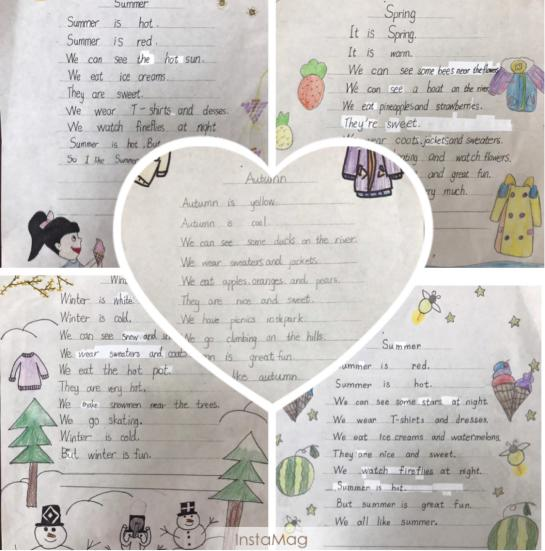 Summer
Summer is hot.
Summer is red.
We can see the hot sun.
We eat ice creams.
They are sweet.
We wear T-shirts and desses.
We watch fineflies at night
Summer is hot. But
So I like Summer
Spring
It is Spring.
It is warm.
We can see some bees near the flowers
We can see a boat on the river
We eat pineapples and strawberries.
They're sweet.
wear coats, jackets and sweaters.
and watch flowers.
and great fun.
much.
Autumn
Autumn is yellow.
Autumn is cool.
We can see some ducks on the river.
We wear sweaters and jackets.
We eat apples, oranges and pears.
They are nice and sweet.
We have picnics in park.
We go climbing on the hills.
is great fun.
like autumn.
Winter is white.
Winter is cold.
We can see snow and
We wear sweaters and coats
We eat the hot pot.
They are very hot.
We make snowmen near the trees.
We go skating.
Winter is cold.
But winter is fun.
Summer
Summer is red.
Summer is hot.
We can see some stars at night.
We wear T-shirts and dresses.
We eat ice creams and watermelons.
They are nice and sweet.
We watch fireflies at night.
Summer is hot.
But summer is great fun.
We all like summer.
InstaMag